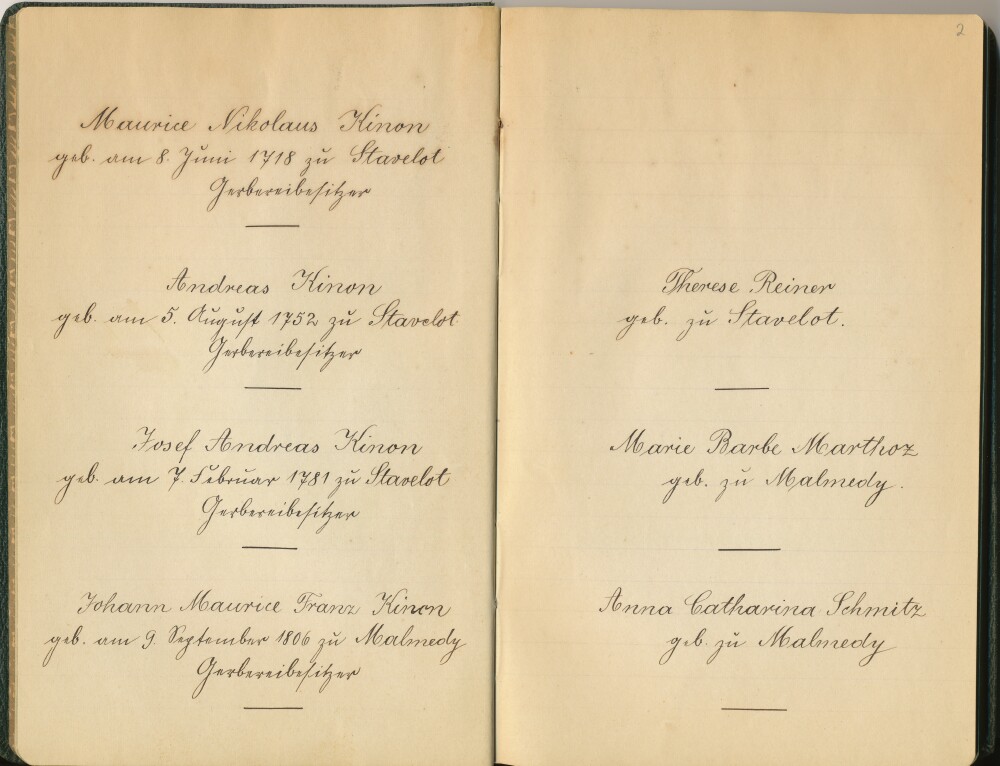 Maurice Nikolaus Kinon
geb. am 8. Juni 1718 zu Stavelot
Gerbereibesitzer
Andreas Kinon
geb. am 5. August 1752 zu Stavelot
Gerbereibesitzer
Josef Andreas Kinon
geb. am 7. Februar 1781 zu Stavelot
Gerbereibesitzer
Johann Maurice Franz Kinon
geb. am 9. September 1806 zu Malmedy
Gerbereibesitzer
2
Therese Reiner
geb. zu Stavelot.
Marie Barbe Marthoz
geb. zu Malmedy.
Anna Catharina Schmitz
geb. zu Malmedy